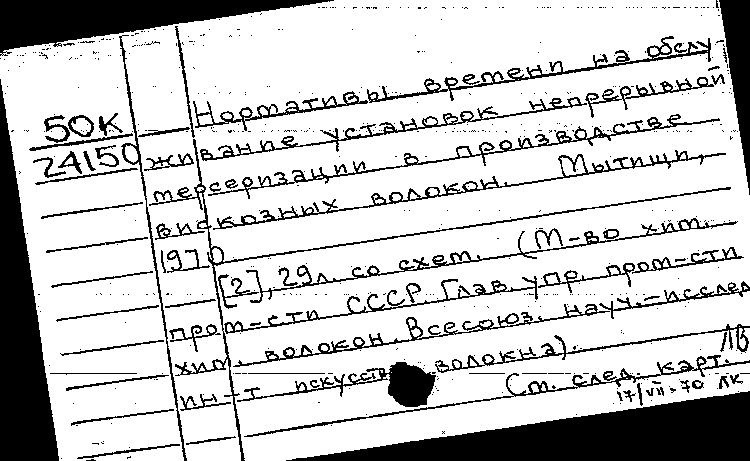 50К
24150
Нормативы времени на обслу-
живание установок непрерывной
мерсеризации в производстве
вискозных волокон. Мытищи,
1970
[2], 29л. со схем. (М-во хим.
пром-сти СССР. Глав. упр. пром-сти
хим. волокон. Всесоюз. науч.-исслед.
ин-т искусств. волокна).
ЛВ
См. след. карт.
17/VII-70 ЛК